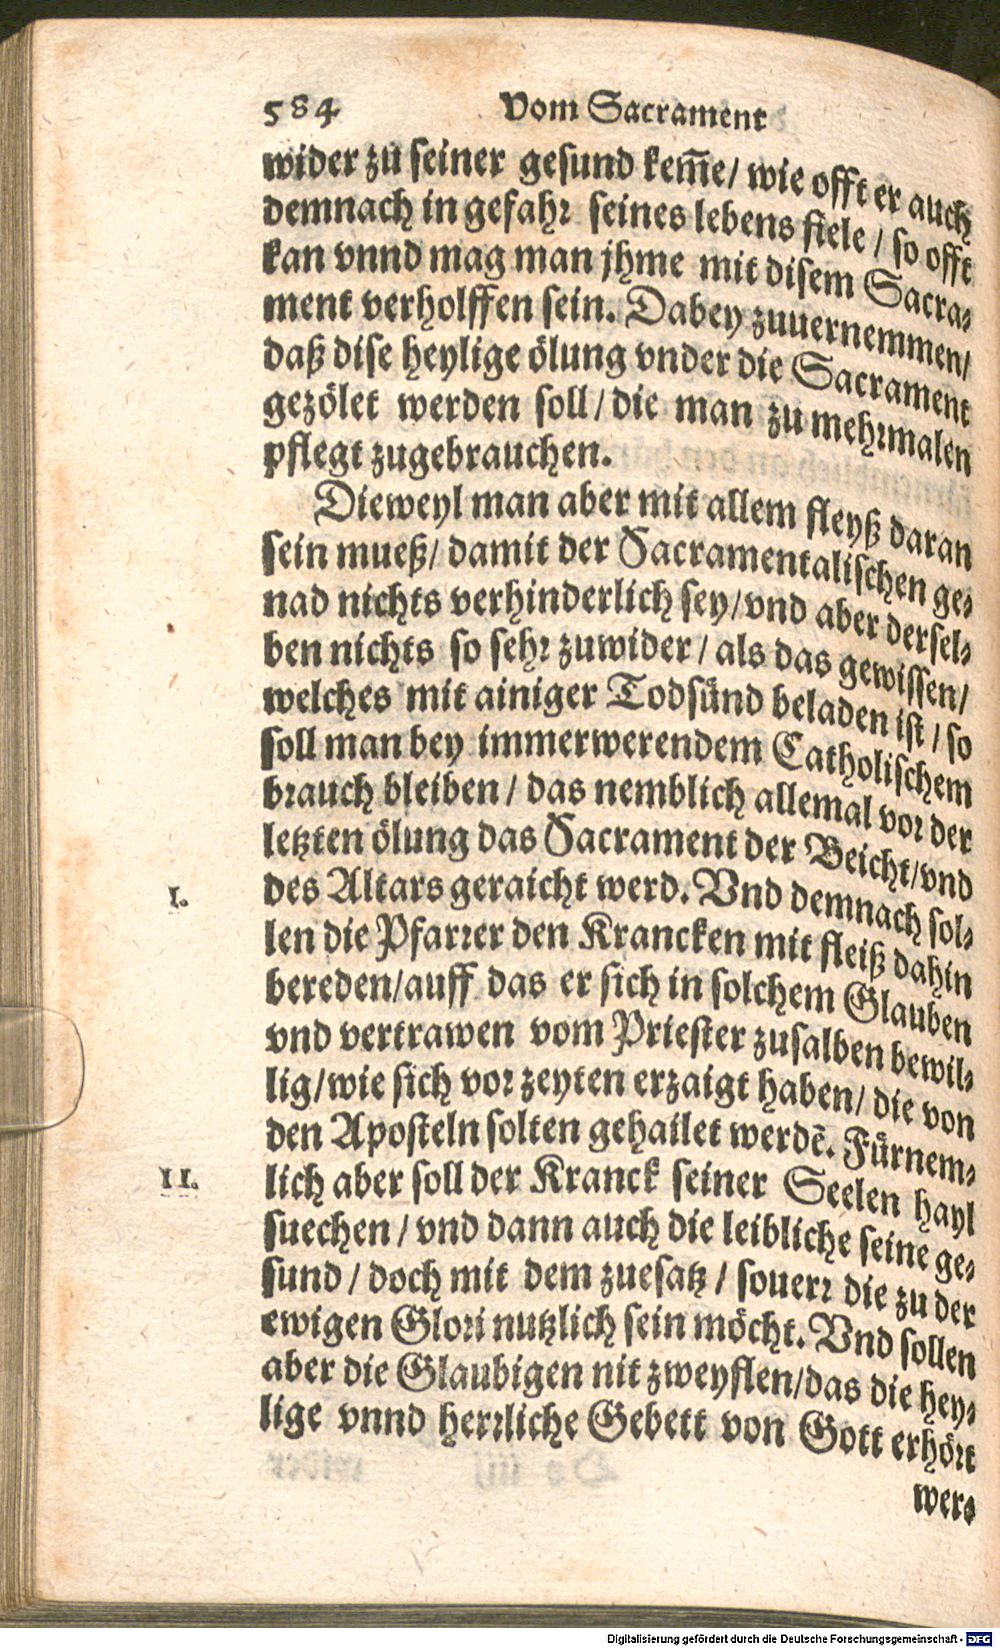 584 Vom Sacrament
wider zu seiner gesund kem̃e/ wie offt er auch
demnach in gefahr seines lebens fiele / so offt
kan vnnd mag man jhme mit disem Sacra-
ment verholffen sein. Dabey zuuernemmen/
daß dise heylige ölung vnder die Sacrament
gezölet werden soll / die man zu mehrmalen
pflegt zugebrauchen.
Dieweyl man aber mit allem fleyß daran
sein mueß/ damit der Sacramentalischen ge-
nad nichts verhinderlich sey/vnd aber dersel-
ben nichts so sehr zuwider / als das gewissen/
welches mit ainiger Todsünd beladen ist / so
soll man bey immerwerendem Catholischem
brauch bleiben / das nemblich allemal vor der
letzten ölung das Sacrament der Beicht/vnd
I. des Altars geraicht werd. Vnd demnach sol-
len die Pfarrer den Krancken mit fleiß dahin
bereden/auff das er sich in solchem Glauben
vnd vertrawen vom Priester zusalben bewil-
lig/wie sich vor zeyten erzaigt haben/ die von
den Aposteln solten gehailet werdẽ. Fürnem-
II. lich aber soll der Kranck seiner Seelen hayl
suechen / vnd dann auch die leibliche seine ge-
sund / doch mit dem zuesatz / souerr die zu der
ewigen Glori nutzlich sein möcht. Vnd sollen
aber die Glaubigen nit zweyflen/das die hey-
lige vnnd herrliche Gebett von Gott erhört
wer-
Digitalisierung gefördert durch die Deutsche Forschungsgemeinschaft - DFG